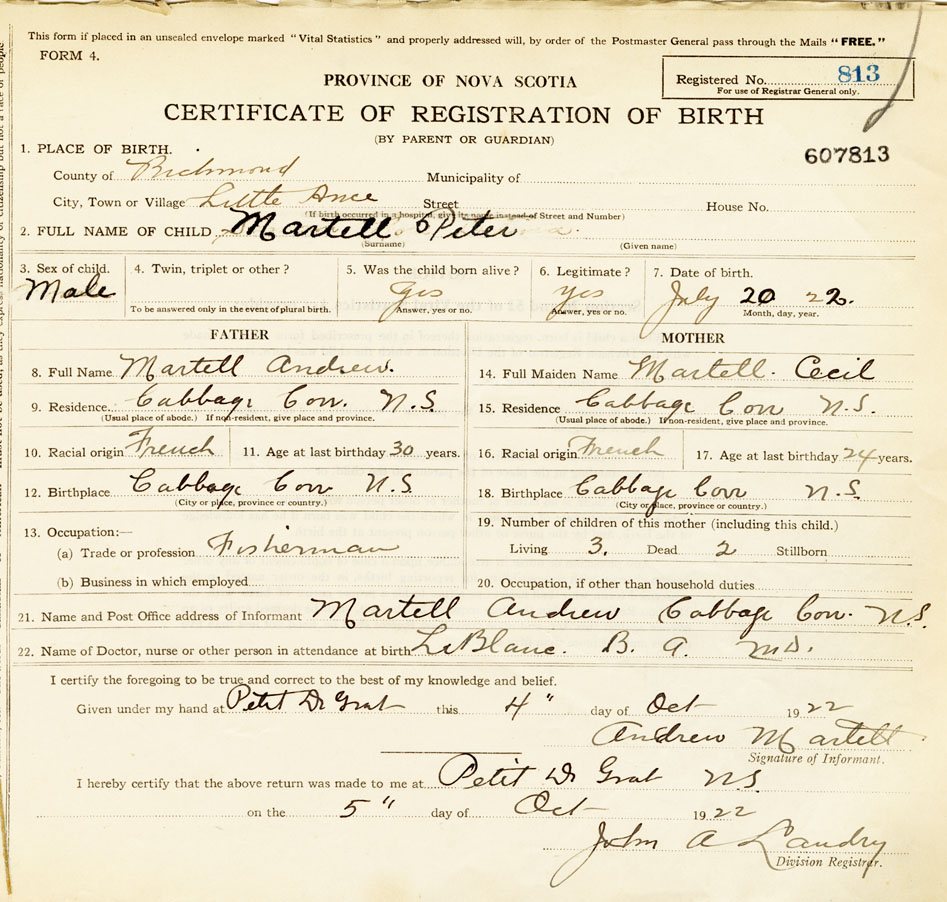 This form if placed in an unsealed envelope marked "Vital Statistics" and properly addressed will, by order of the Postmaster General pass through the Mails "FREE."
FORM 4.
Registered No. 813
For use of Registrar General only.
PROVINCE OF NOVA SCOTIA
CERTIFICATE OF REGISTRATION OF BIRTH
(BY PARENT OR GUARDIAN)
607813
1. PLACE OF BIRTH.
County of Richmond Municipality of
City, Town or Village Little Ance Street House No.
(If birth occurred in a hospital, give its name instead of Street and Number)
2. FULL NAME OF CHILD Martell Peter
(Surname) (Given name)
3. Sex of child. 4. Twin, triplet or other? 5. Was the child born alive? 6. Legitimate? 7. Date of birth.
Male Yes yes July 20 22.
To be answered only in the event of plural birth. Answer, yes or no. Answer, yes or no. Month, day, year.
FATHER MOTHER
8. Full Name Martell Andrew. 14. Full Maiden Name Martell. Cecil
9. Residence. Cabbage Cow. N.S. 15. Residence Cabbage Cow N.S.
(Usual place of abode.) If non-resident, give place and province. (Usual place of abode.) If non-resident, give place and province.
10. Racial origin French 11. Age at last birthday 30 years. 16. Racial origin French 17. Age at last birthday 24 years.
12. Birthplace Cabbage Cow N.S. 18. Birthplace Cabbage Cow N.S.
(City or place, province or country.) (City or place, province or country.)
13. Occupation:— 19. Number of children of this mother (including this child.)
(a) Trade or profession Fisherman Living 3. Dead 2 Stillborn
(b) Business in which employed 20. Occupation, if other than household duties
21. Name and Post Office address of Informant Martell Andrew Cabbage Cow. N.S.
22. Name of Doctor, nurse or other person in attendance at birth LeBlanc. B. A. MD.
I certify the foregoing to be true and correct to the best of my knowledge and belief.
Given under my hand at Petit De Grat this 4" day of Oct 1922
Andrew Martell
Signature of Informant.
I hereby certify that the above return was made to me at Petit De Grat N.S.
on the 5" day of Oct 1922
John A Landry
Division Registrar.